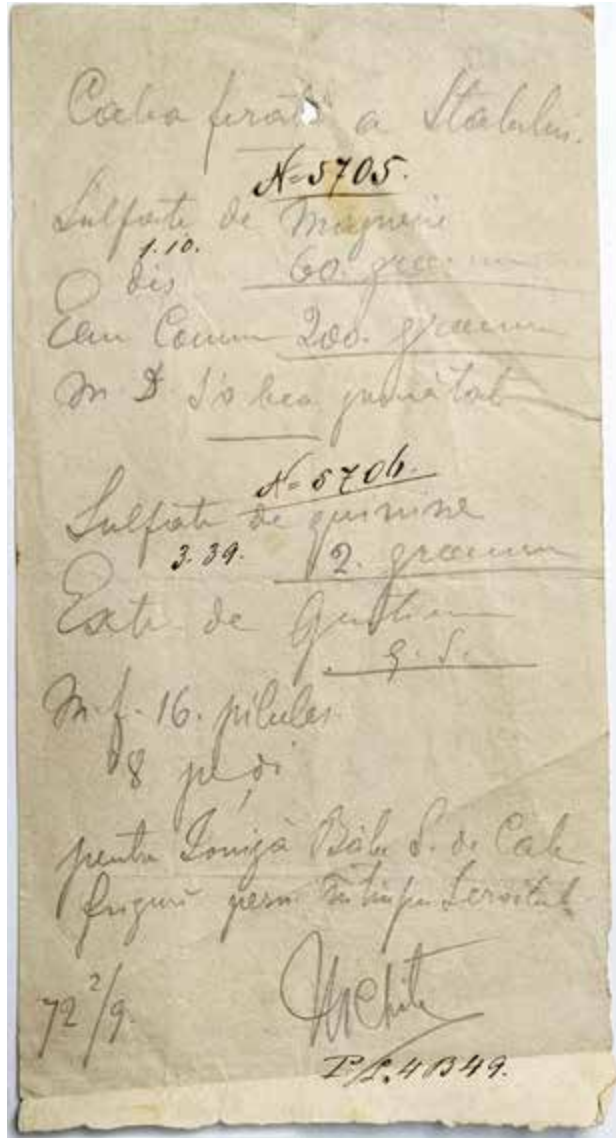 Calea ferată a Statului.
N=5705.
Sulfate de Magnesie
1.10.
dis 60. gramm
Eau Comm 200. gramm
M D S'o bea jumătat
N=5706.
Sulfate de quinine
3.39.
2. gramm
Extr de Gentian
q. s.
M. f. 16. pilules
8 pe di
pentru Ioniță S. de Cale
friguri
72 2/9.